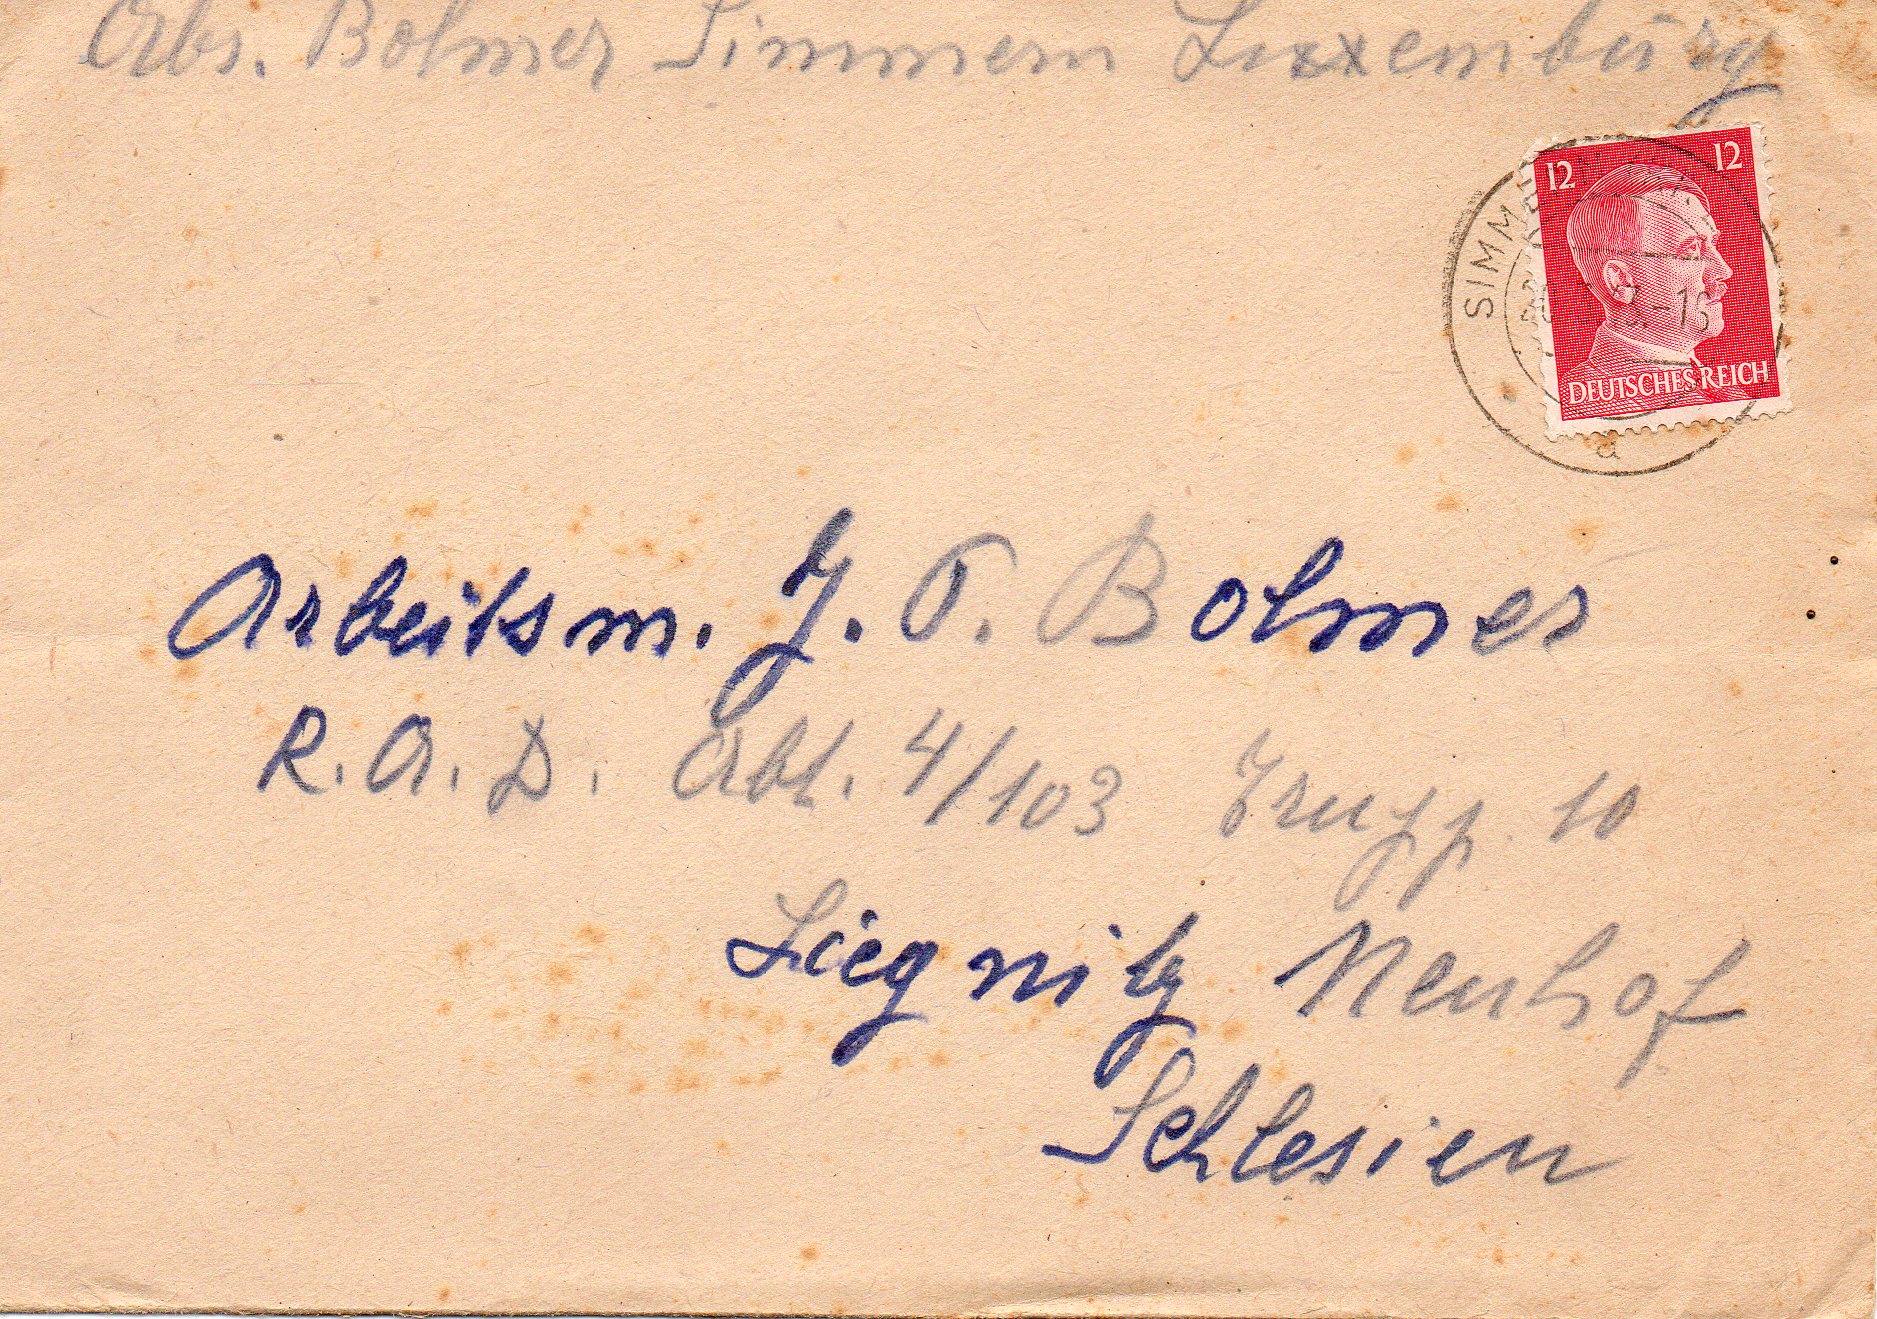 Abs. Bohmer Simmern Luxxemburg
12 12
SIMM
-16
DEUTSCHES REICH
a
Arbeitsm. J. P. Bohmer
R.A.D. Abt. 4/103 Trupp. 10
Liegnitz Neuhof
Schlesien